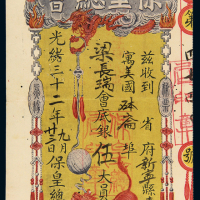 保皇總會
第
號
茲收到 省 府新寧縣
寓美國砵崙埠
梁長瑞會底銀伍大員
光緒三十二年九月廿三日保皇總